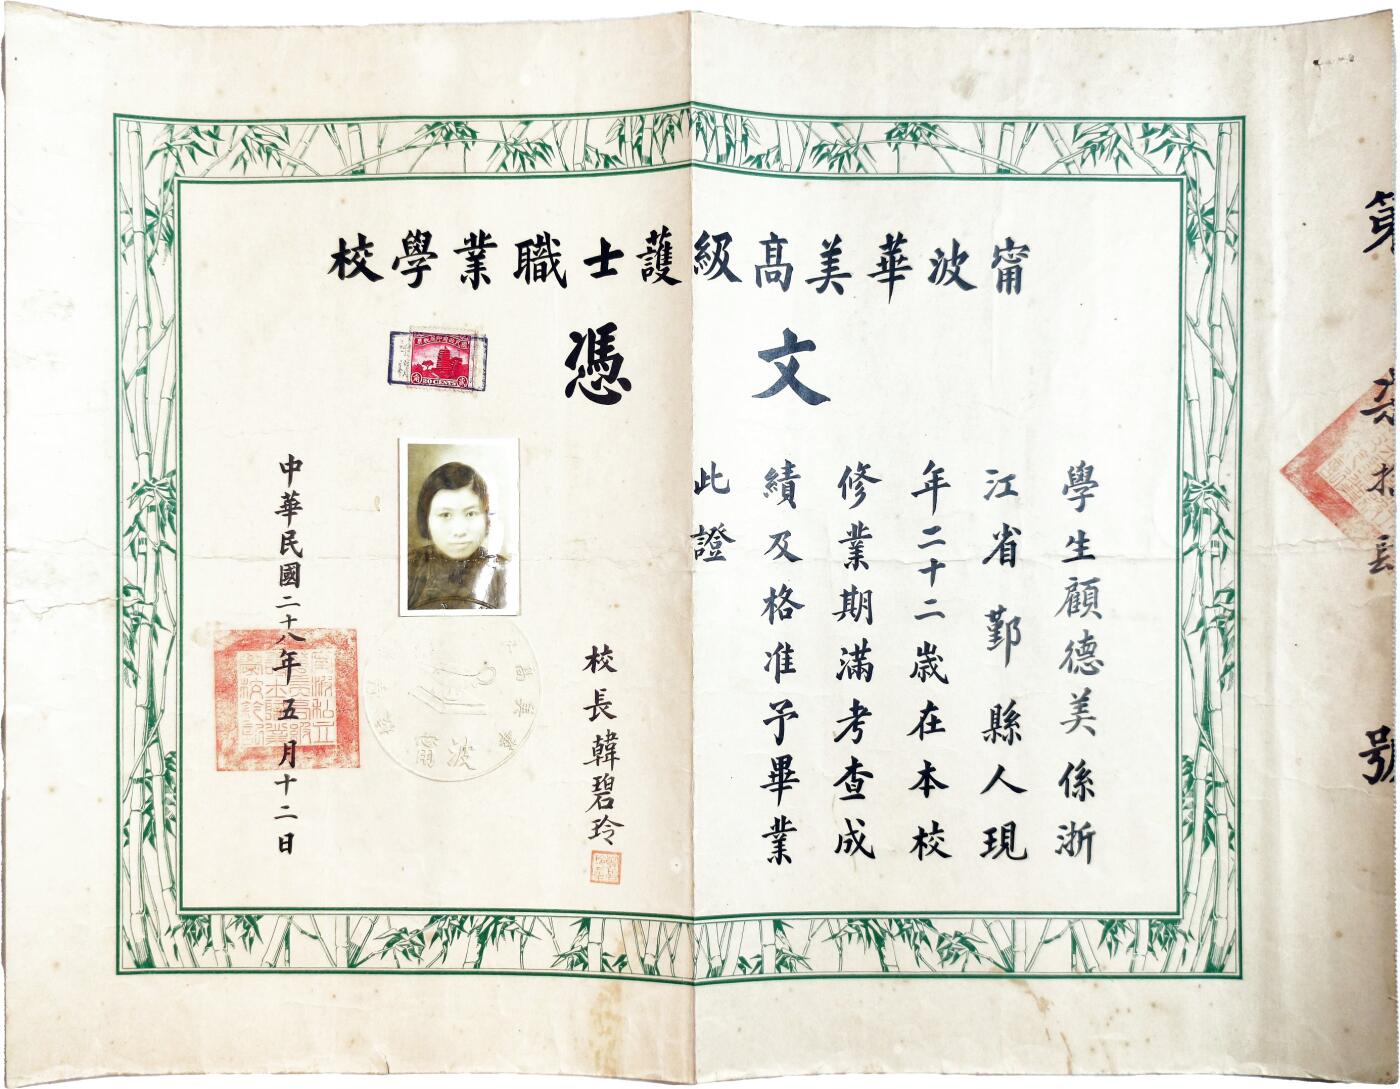 甯波華美高級護士職業學校
文憑
學生顧德美係浙
江省鄞縣人現
年二十二歲在本校
修業期滿考查成
績及格准予畢業
此證
校長韓碧玲
中華民國二十八年五月十二日
20 CENTS
甯波
號